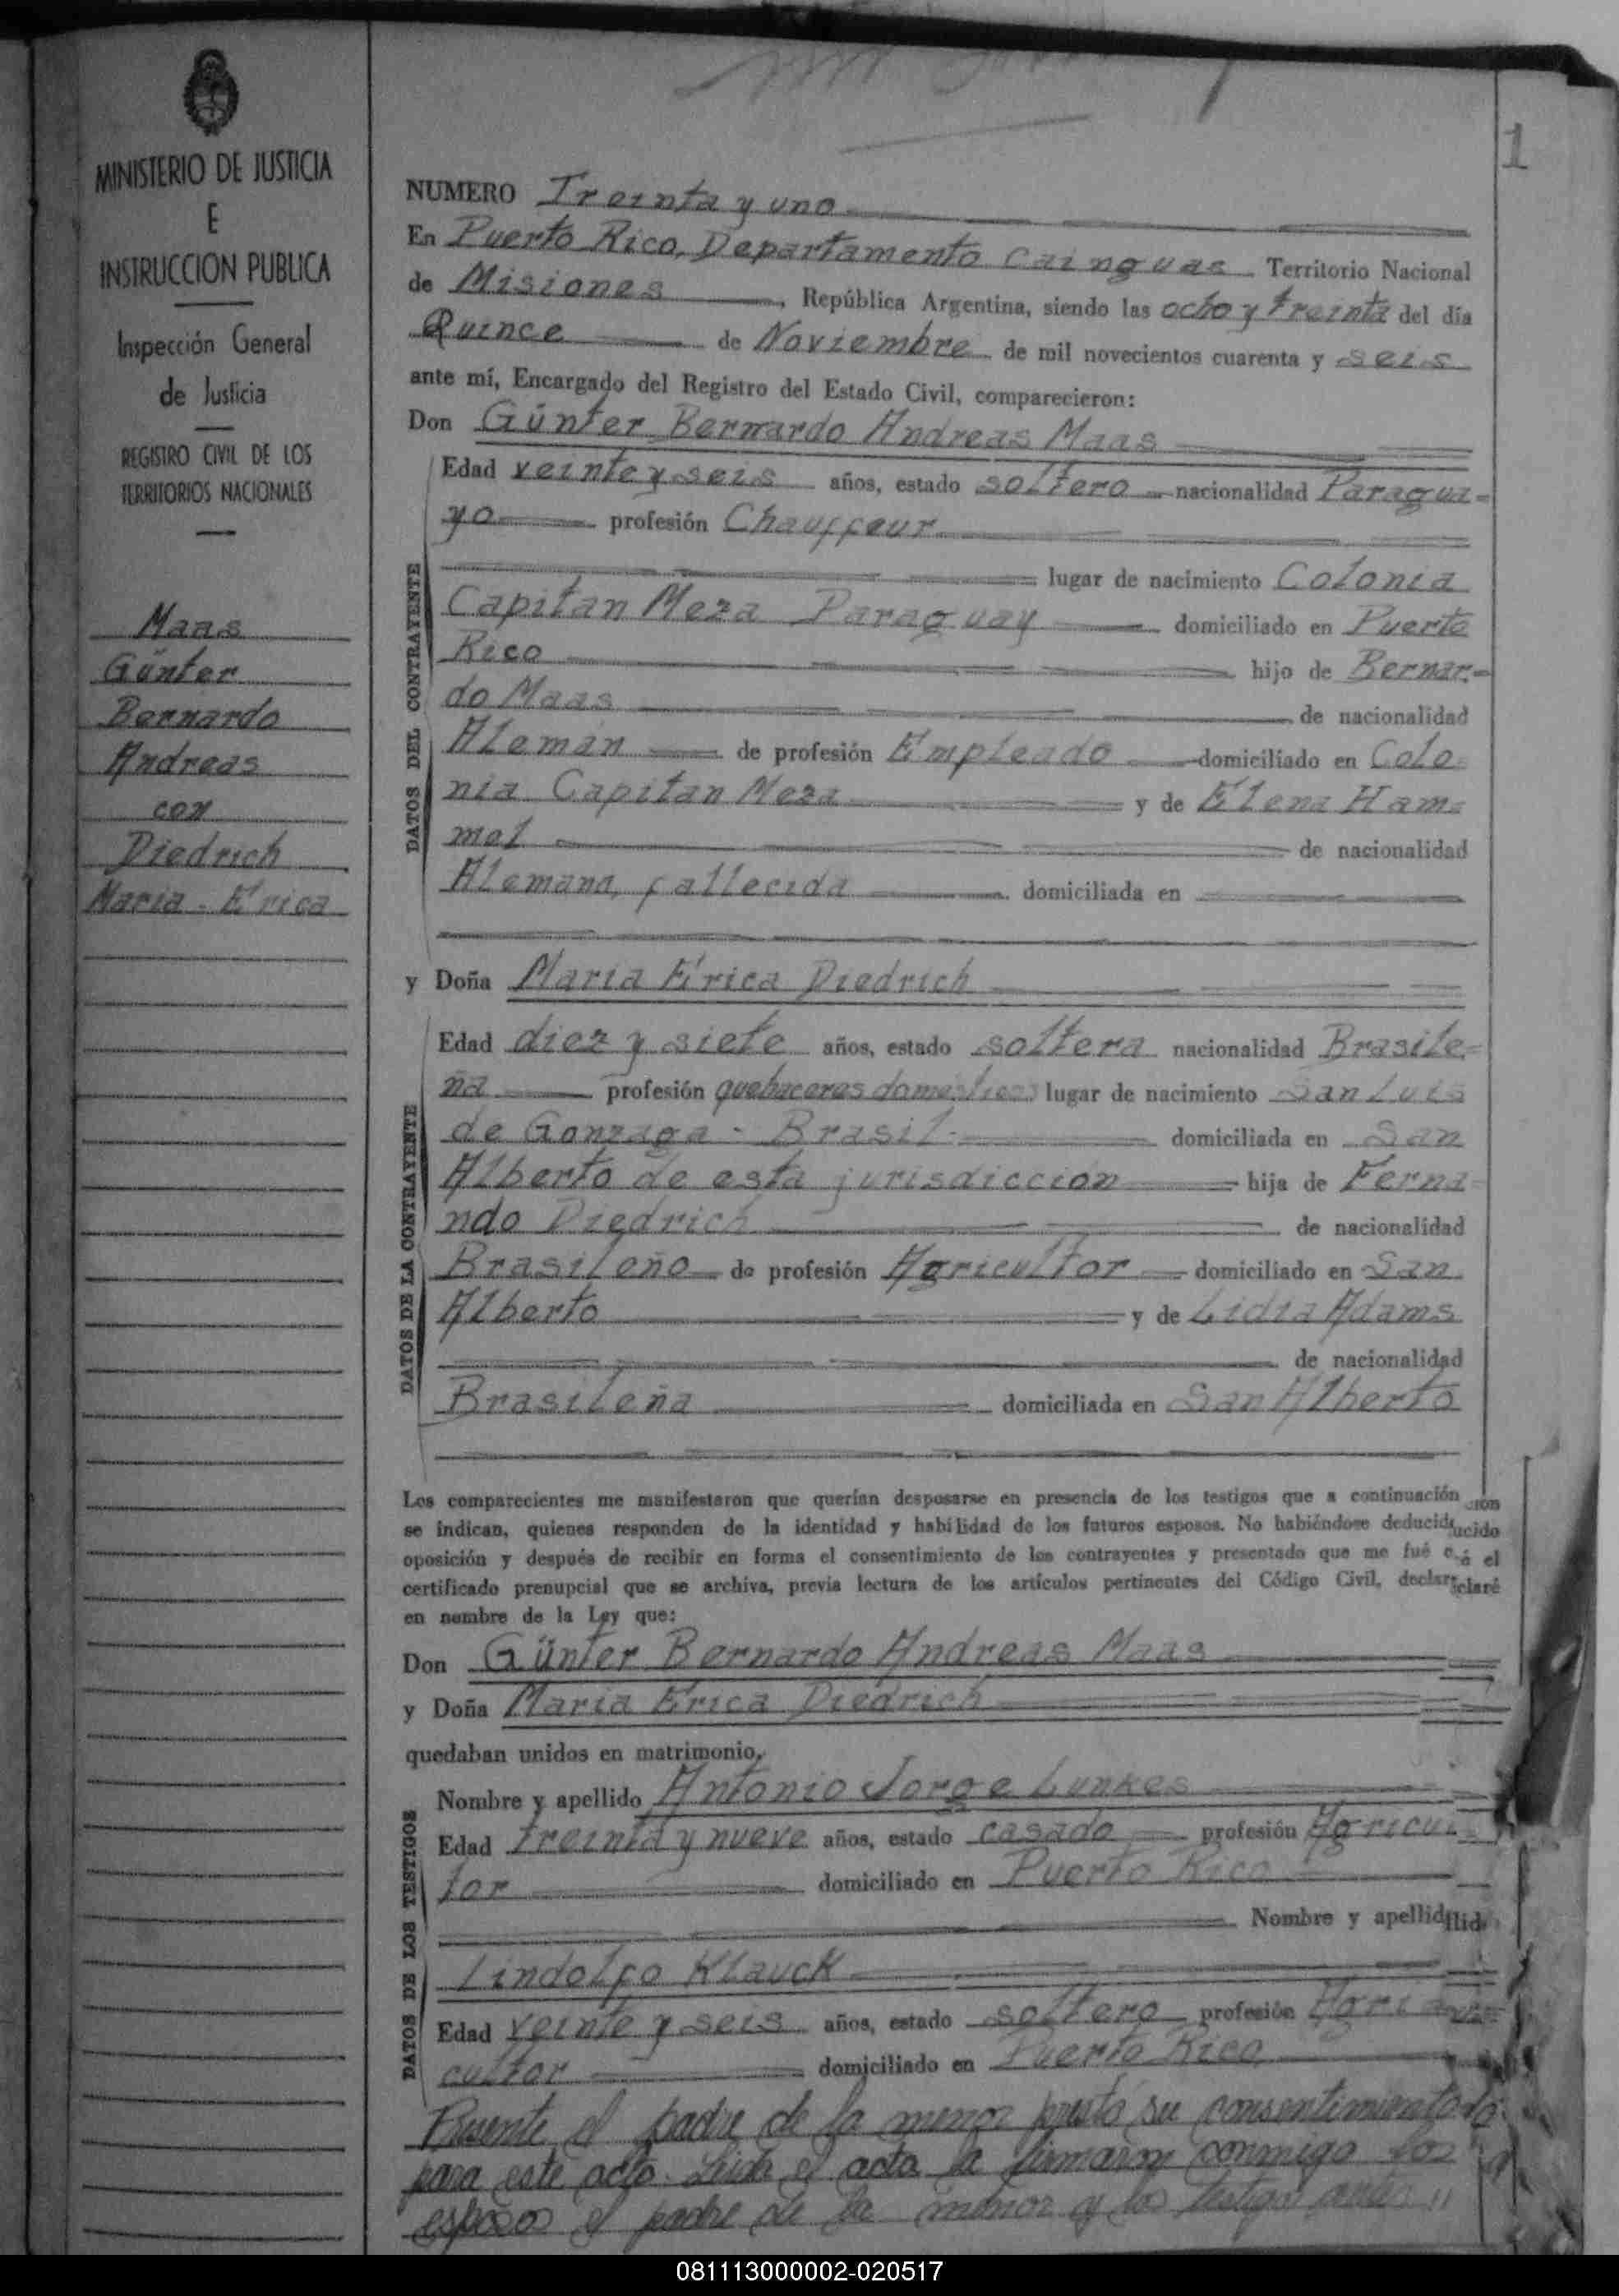 1
MINISTERIO DE JUSTICIA
E
INSTRUCCION PUBLICA
Inspección General
de Justicia
REGISTRO CIVIL DE LOS
TERRITORIOS NACIONALES
Maas
Günter
Bernardo
Andreas
con
Diedrich
Maria - Érica
NUMERO Treinta y uno
En Puerto Rico, Departamento Cainguas Territorio Nacional
de Misiones, República Argentina, siendo las ocho y treinta del día
Quince de Noviembre de mil novecientos cuarenta y seis
ante mí, Encargado del Registro del Estado Civil, comparecieron:
Don Günter Bernardo Andreas Maas
DATOS DEL CONTRAYENTE
Edad veinte y seis años, estado soltero nacionalidad Paragua=
yo profesión Chauffeur
lugar de nacimiento Colonia
Capitan Meza Paraguay domiciliado en Puerto
Rico hijo de Bernar=
do Maas de nacionalidad
Alemán de profesión Empleado domiciliado en Colo=
nia Capitan Meza y de Elena Ham=
mel de nacionalidad
Alemana, fallecida domiciliada en
y Doña Maria Érica Diedrich
DATOS DE LA CONTRAYENTE
Edad diez y siete años, estado soltera nacionalidad Brasile=
ña profesión quehaceres domésticos lugar de nacimiento San Luis
de Gonzaga - Brasil - domiciliada en San
Alberto de esta jurisdicción hija de Ferna=
ndo Diedrich de nacionalidad
Brasileño de profesión Agricultor domiciliado en San
Alberto y de Lidia Adams
de nacionalidad
Brasileña domiciliada en San Alberto
Los comparecientes me manifestaron que querían desposarse en presencia de los testigos que a continuación
se indican, quienes responden de la identidad y habilidad de los futuros esposos. No habiéndose deducido
oposición y después de recibir en forma el consentimiento de los contrayentes y presentado que me fué el
certificado prenupcial que se archiva, previa lectura de los artículos pertinentes del Código Civil, declaré
en nombre de la Ley que:
Don Günter Bernardo Andreas Maas
y Doña Maria Erica Diedrich
quedaban unidos en matrimonio,
DATOS DE LOS TESTIGOS
Nombre y apellido Antonio Jorge Lunkes
Edad treinta y nueve años, estado casado profesión Agricul=
tor domiciliado en Puerto Rico
Nombre y apellido
Lindolfo Klauck
Edad veinte y seis años, estado soltero profesión Agri
cultor domiciliado en Puerto Rico
Presente el padre de la menor prestó su consentimiento
para este acto. Leida el acta la firmaron conmigo los
esposos el padre de la menor y los testigos
081113000002-020517